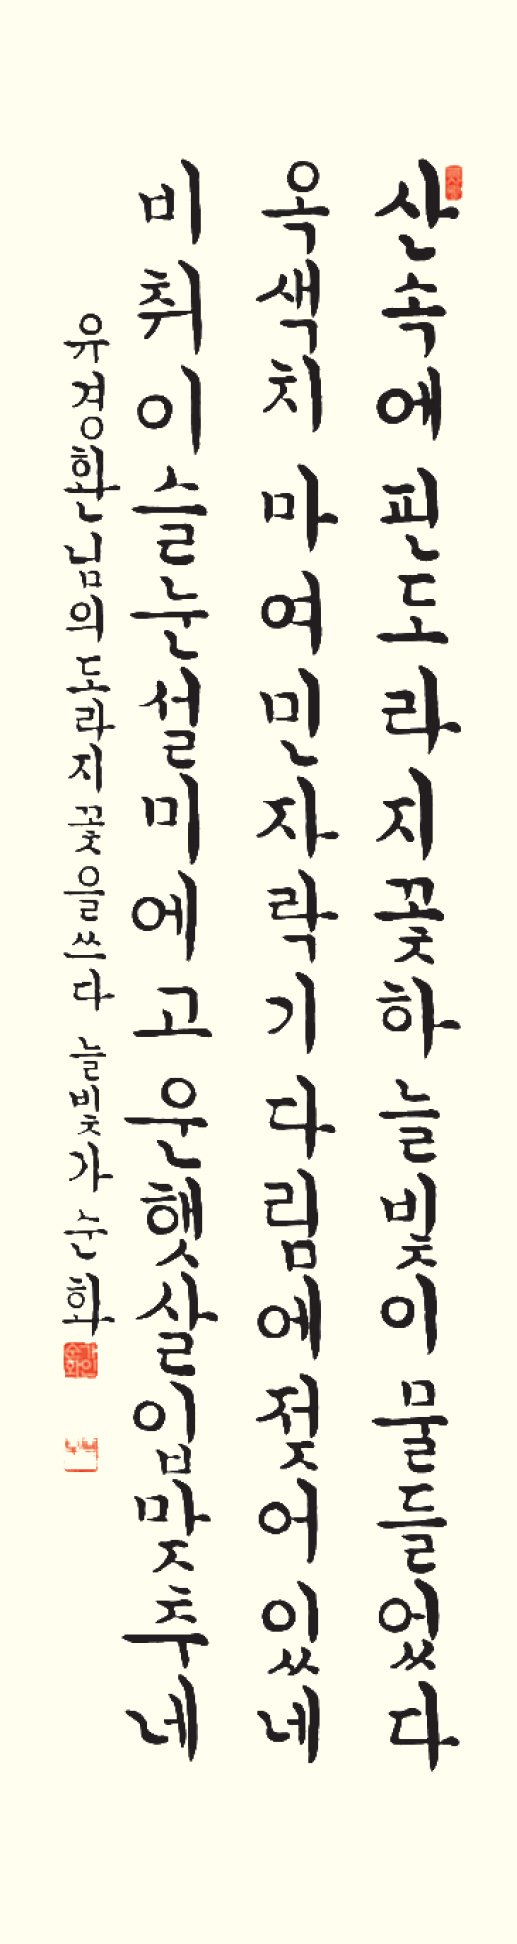 산속에 핀 도라지꽃 하늘빛이 물들었다
옥색치마 여민자락 기다림에 젖어있네
비취이슬 눈썰미에 고운햇살 입맞추네
유경환님의 도라지꽃을 쓰다 늘빛 가순화